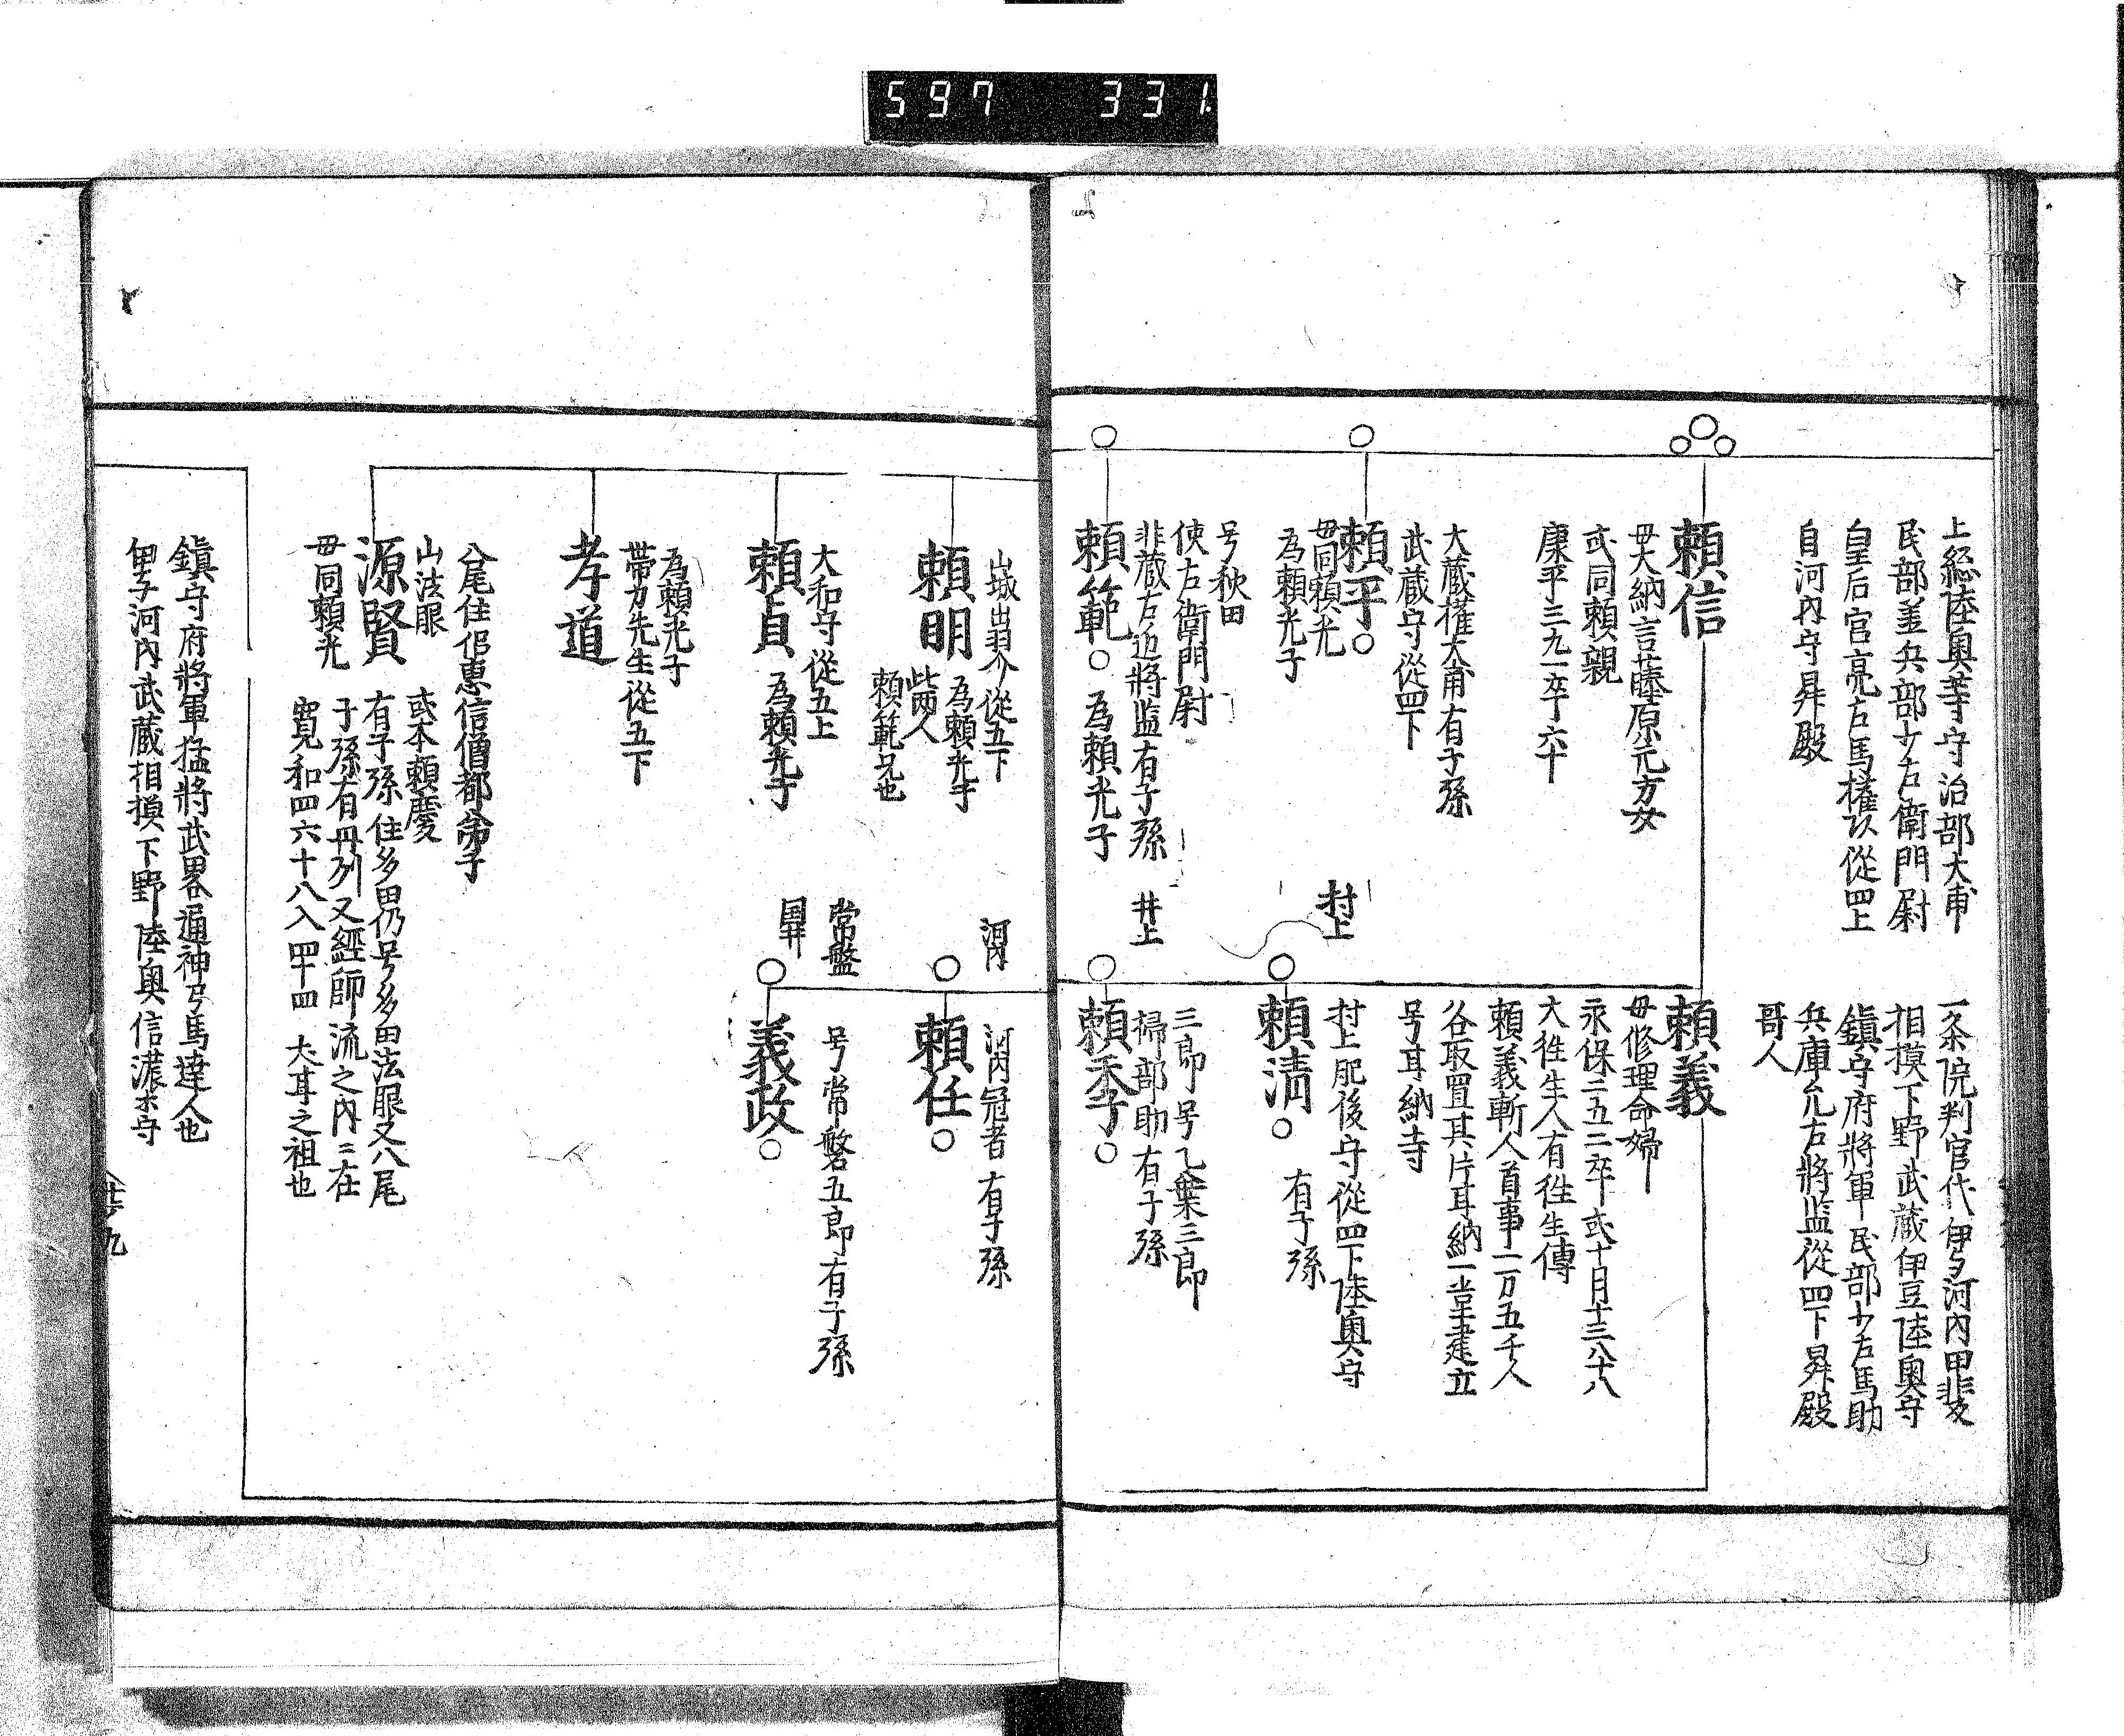 597 331
上総陸奥等守治部大甫
民部兼兵部少左衛門尉
皇后官亮左馬権以従四上
自河内守昇殿
頼信
母大納言藤原元方女
或同頼親
康平三九一卒六十
大蔵権大甫有子孫
武蔵守従四下
頼平
母同頼光
為頼光子
号秋田
使左衛門尉
非蔵左近将監有子孫
頼範
為頼光子
一条院判官代伊与河内甲斐
相摸下野武蔵伊豆陸奥守
鎮守府将軍民部少左馬助
兵庫允左将監従四下昇殿
哥人
頼義
母修理命婦
永保二五二卒或十月十三八十八
大往生人有往生傳
頼義斬人首事一万五千人
各取置其片耳納一堂建立
号耳納寺
村上
村上肥後守従四下陸奥守
頼清
有子孫
井上
三郎号乙葉三郎
掃部助有子孫
頼季
山城出羽介従五下
頼明
為頼光子
此両人
頼範兄也
大和守従五上
頼貞
為頼光子
為頼光子
帯刀先生従五下
孝道
八尾住侶恵信僧都弟子
山法眼
源賢
母同頼光
或本頼慶
有子孫住多田仍号多田法眼又八尾
子孫有丹州又経師流之内ニ在
寛和四六十八入四十四 大耳之祖也
河内
河内冠者 有子孫
頼任
常盤
国井
号常磐五郎有子孫
義政
鎮守府将軍猛将武畧通神弓馬達人也
甲子河内武蔵相摸下野陸奥信濃等守
廿九